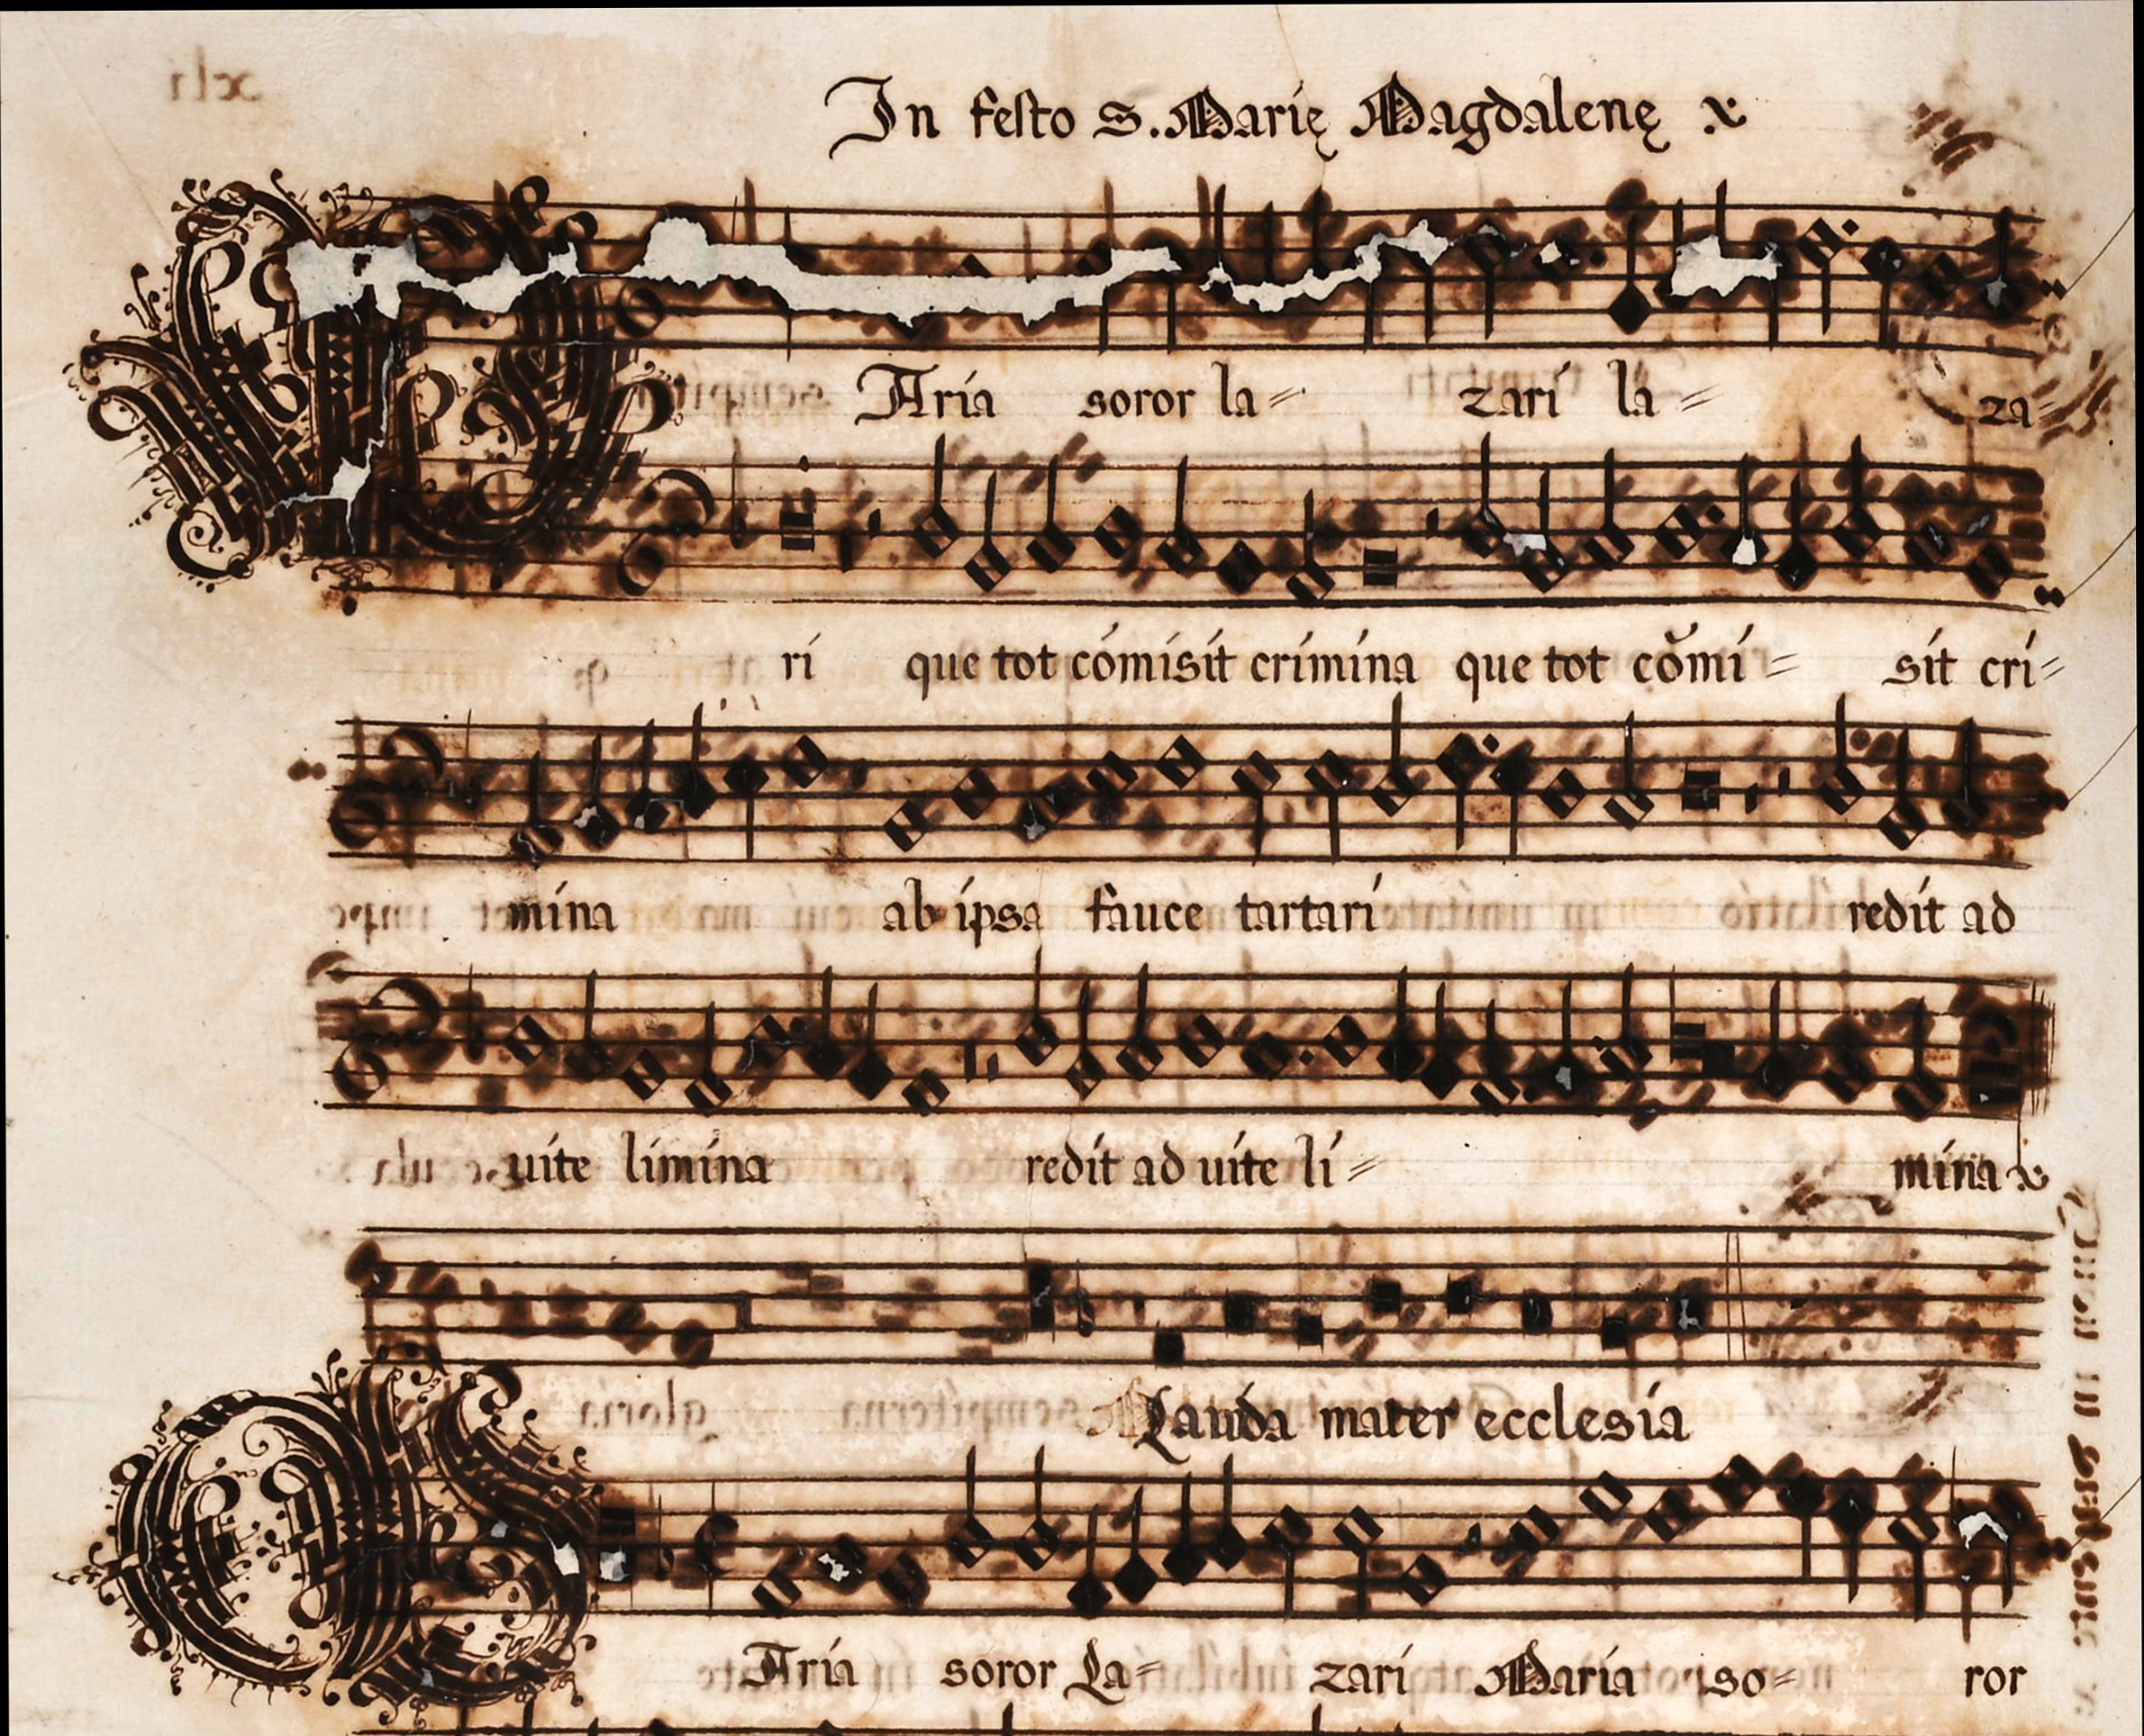 In festo S. Marię Magdalenę x
MAria soror la= zari la= za=
ri que tot cómisit crimina que tot cŏmi= sit cri=
mina ab ipsa fauce tartari redit ad
uite limina redit ad uite li= mina x
Lauda mater ecclesia
MAria soror La= zari Maria so= ror